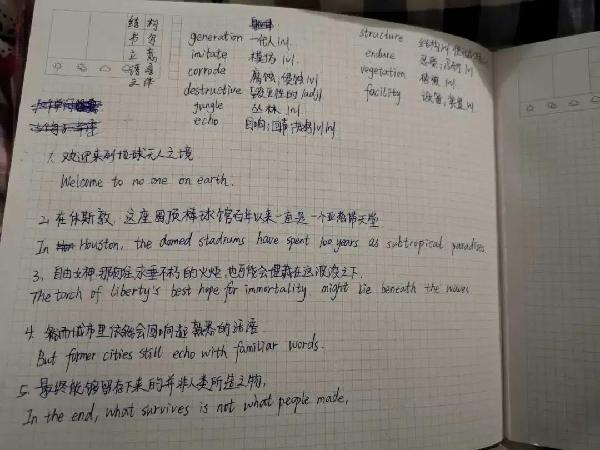 结构
书名
立意
语言
文体
generation 一代人 n.
imitate 模仿 v.
corrode 腐蚀;侵蚀 v.
destructive 毁灭性的 adj.
jungle 丛林 n.
echo 回响;回声
structure 结构
endure
vegetation 植被 n.
facility 设备
1. 欢迎来到地球无人之境
Welcome to no one on earth.
2. 在休斯敦,这座圆顶棒球馆百年以来一直是一个亚热带天堂
In Houston, the domed stadiums have spent 100 years as subtropical paradises
3. 自由女神那向往永垂不朽的火炬,也可能会埋藏在这浪涛之下.
The torch of liberty's best hope for immortality might lie beneath the waves.
4. 城市里依然会回响起熟悉的话语
But former cities still echo with familiar words.
5. 最终能够留存下来的并非人类所造之物,
In the end, what survives is not what people made,